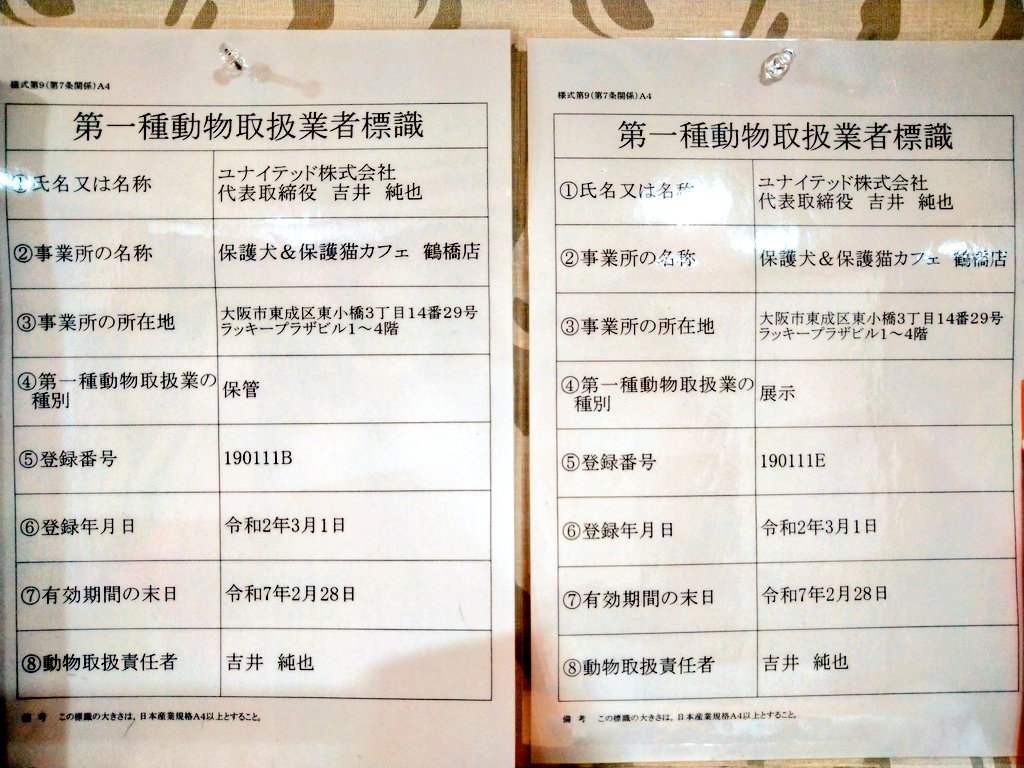 様式第9(第7条関係)A4
第一種動物取扱業者標識
①氏名又は名称
ユナイテッド株式会社
代表取締役 吉井 純也
②事業所の名称
保護犬&保護猫カフェ 鶴橋店
③事業所の所在地
大阪市東成区東小橋3丁目14番29号
ラッキープラザビル1〜4階
④第一種動物取扱業の
種別
保管
⑤登録番号
190111B
⑥登録年月日
令和2年3月1日
⑦有効期間の末日
令和7年2月28日
⑧動物取扱責任者
吉井 純也
備考 この標識の大きさは、日本産業規格A4以上とすること。
様式第9(第7条関係)A4
第一種動物取扱業者標識
①氏名又は名称
ユナイテッド株式会社
代表取締役 吉井 純也
②事業所の名称
保護犬&保護猫カフェ 鶴橋店
③事業所の所在地
大阪市東成区東小橋3丁目14番29号
ラッキープラザビル1〜4階
④第一種動物取扱業の
種別
展示
⑤登録番号
190111E
⑥登録年月日
令和2年3月1日
⑦有効期間の末日
令和7年2月28日
⑧動物取扱責任者
吉井 純也
備考 この標識の大きさは、日本産業規格A4以上とすること。